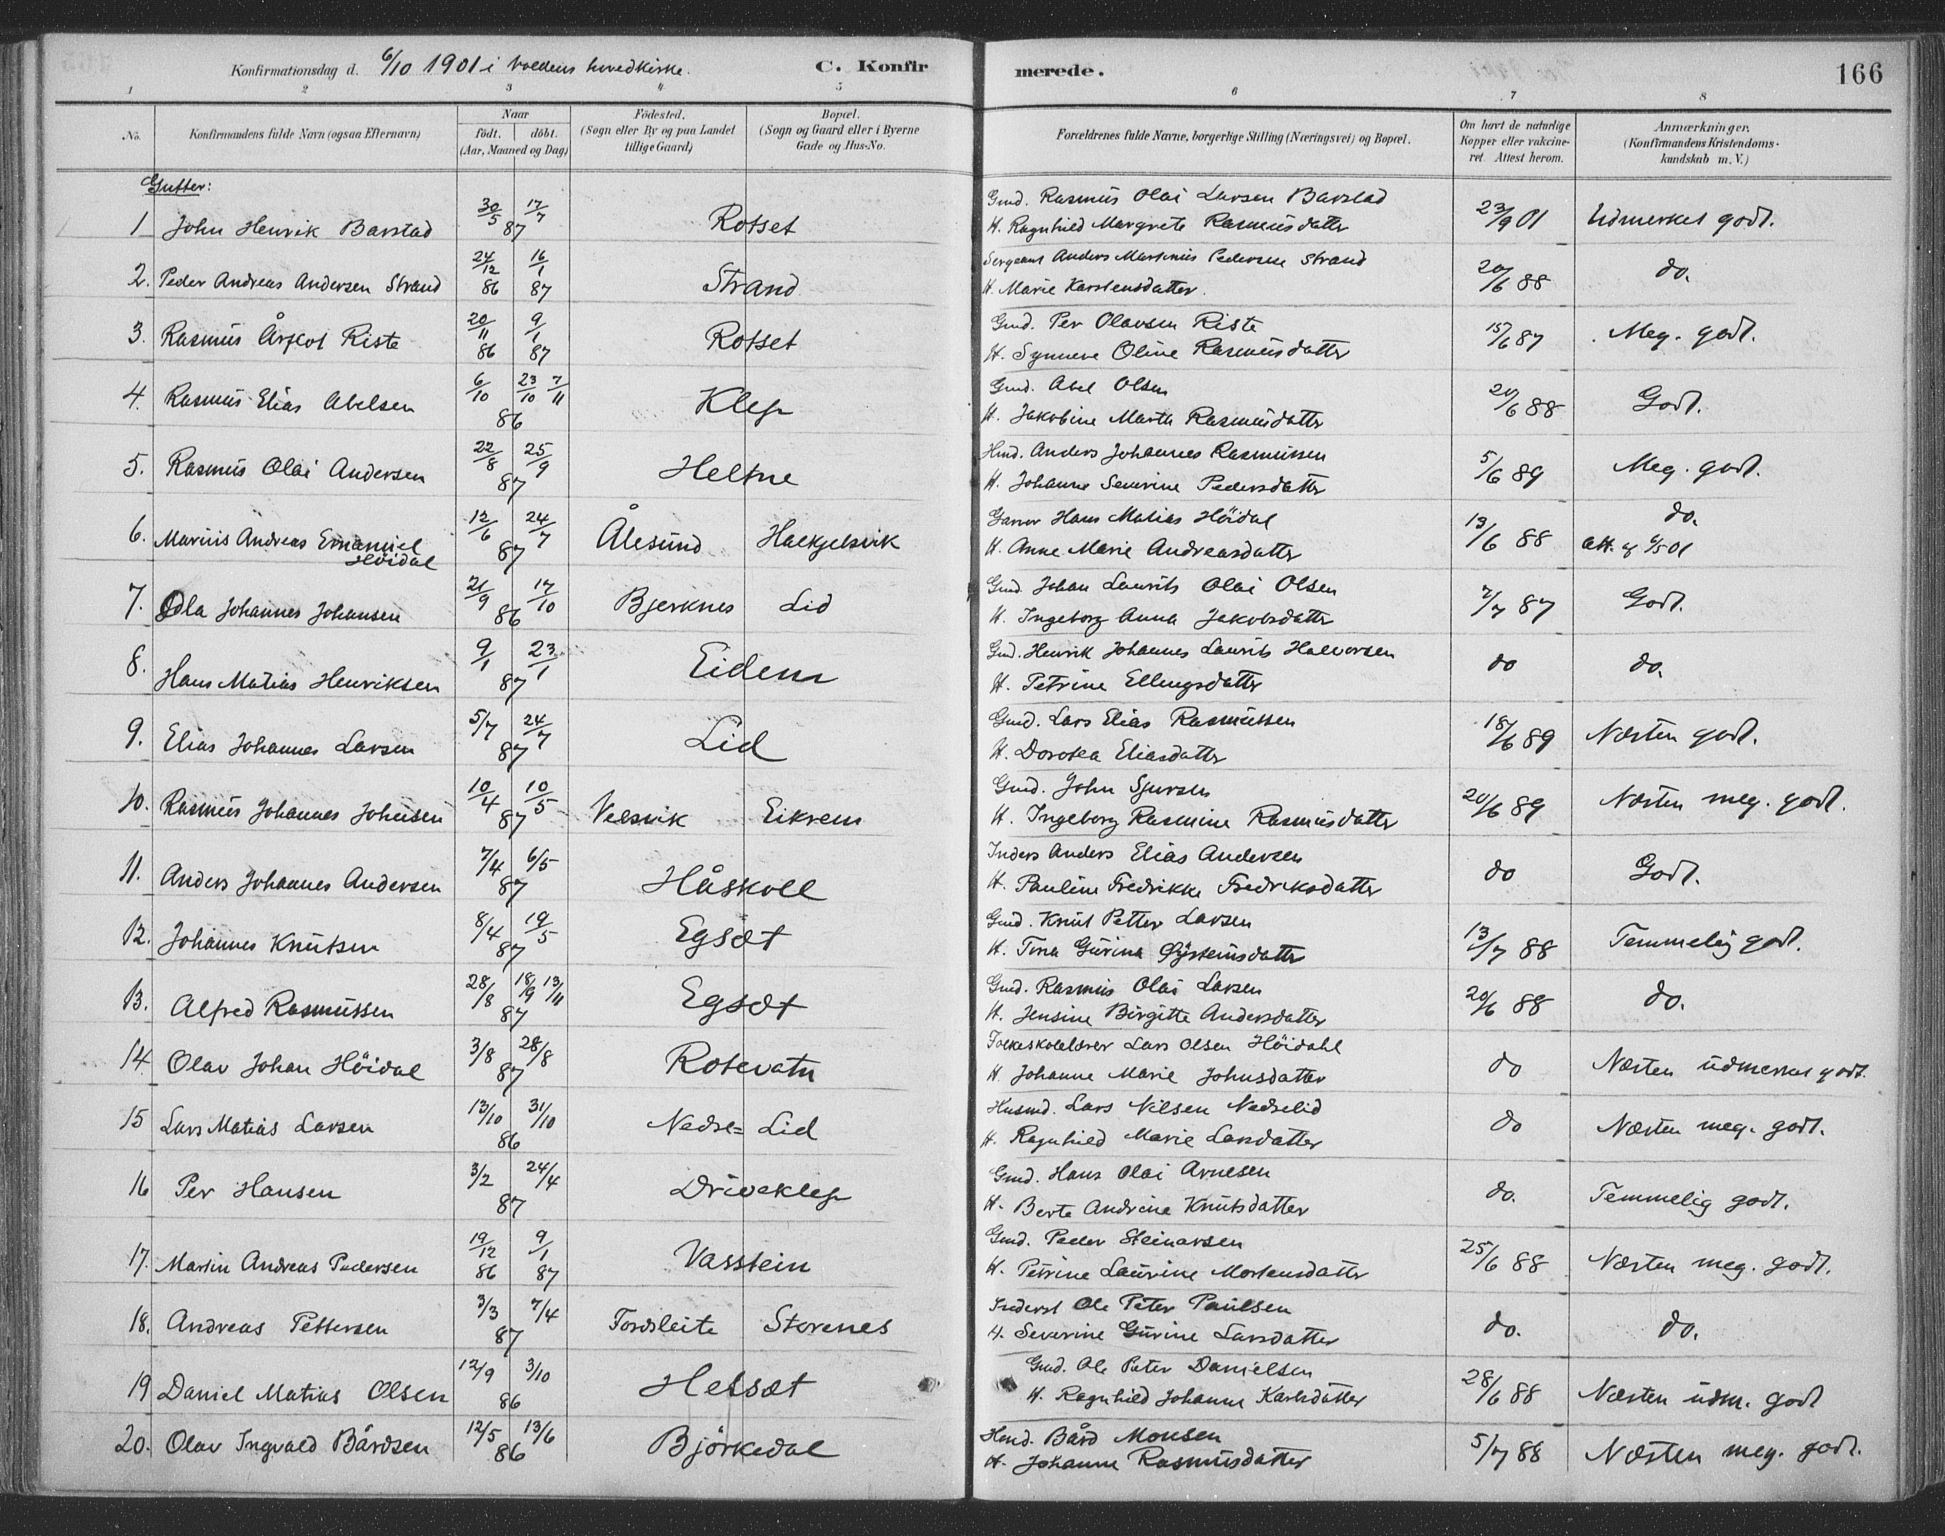 Konfirmationsdag d. 6/10 1901 i Voldens hovedkirke. C. Konfirmerede. 166
1 2 3 4 5 6 7 8
No. Konfirmandens fulde Navn (ogsaa Efternavn) Naar født. døbt. (Aar, Maaned og Dag) Fødested. (Sogn eller By og paa Landet tillige Gaard) Bopæl. (Sogn og Gaard eller i Byerne Gade og Hus-No. Forældrenes fulde Navne, borgerlige Stilling (Næringsvei) og Bopæl. Om havt de naturlige Kopper eller vakcineret. Attest herom. Anmærkninger. (Konfirmandens Kristendomskundskab m. V.)
Gutter:
1 John Henrik Barstad 30/5 17/7 87 Rotset Gmd. Rasmus Olai Larsen Barstad
H. Ragnhild Margrete Rasmusdatter 23/9 01 Udmerket godt.
2. Peder Andreas Andersen Strand 24/12 86 16/1 87 Strand Sergeant Anders Martinus Pedersen Strand
H. Marie Karstensdatter. 20/6 88 do.
3. Rasmus Årflot Riste 20/11 86 9/1 87 Rotset Gmd. Per Olavsen Riste
H. Synneve Oline Rasmusdatter 15/6 87 Meg. godt.
4. Rasmus Elias Abelsen 6/10 23/10 7/11 86 Klep Gmd. Abel Olsen
H. Jakobine Marta Rasmusdatter 20/6 88 Godt.
5. Rasmus Olai Andersen 22/8 25/9 87 Heltne Hmd. Anders Johannes Rasmussen
H. Johanne Severine Pedersdatter 5/6 89 Meg. godt.
6. Marius Andreas Emanuel Höidal 12/6 24/7 87 Ålesund Halkjelsvik Garver Hans Matias Höidal
H. Anne Marie Andreasdatter 13/6 88 do.
7. Ola Johannes Johansen 21/9 17/10 86 Bjerknes Lid Gmd. Johan Laurits Olai Olsen
H. Ingeborg Anna Jakobsdatter 7/7 87 Godt.
8. Hans Matias Henriksen 9/1 23/1 87 Eidem Gmd. Henrik Johannes Laurits Halvorsen
H. Petrine Ellingsdatter do do.
9. Elias Johannes Larsen 5/7 24/7 87 Lid Gmd. Lars Elias Rasmussen
H. Dorotea Eliasdatter 18/6 89 Næsten godt.
10. Rasmus Johannes Johnsen 10/4 10/5 87 Velsvik Eikrem Gmd. John Sjursen
H. Ingeborg Rasmine Rasmusdatter 20/6 89 Næsten meg. godt.
11. Anders Johannes Andersen 7/4 6/5 87 Håskoll Inders Anders Elias Andersen
H. Pauline Fredrikke Fredriksdatter do Godt.
12. Johannes Knutsen 8/4 19/5 87 Egsæt Gmd. Knut Petter Larsen
H. Tina Gurina Øysteinsdatter 13/7 88 Temmelig godt.
13. Alfred Rasmussen 28/8 18/9 13/11 87 Egsæt Gmd. Rasmus Olai Larsen
H. Jensine Birgitte Andersdatter 20/6 88 do.
14 Olav Johan Höidal 3/8 28/8 87 Rotevatn Folkeskolelærer Lars Olsen Höidahl
H. Johanne Marie Johnsdatter do Næsten udmerket godt.
15 Lars Matias Larsen 13/10 31/10 86 Nedre= Lid Husmd. Lars Nilsen Nedrelid
H. Ragnhild Marie Larsdatter do Næsten meg. godt.
16 Per Hansen 3/2 24/4 87 Driveklep Gmd. Hans Olai Arnesen
H. Berte Andrine Knutsdatter do. Temmelig godt.
17. Martin Andreas Pedersen 19/12 86 9/1 87 Vasstein Gmd. Peder Steinarsen
H. Petrine Laurine Mortensdatter 25/6 88 Næsten meg. godt.
18. Andreas Pettersen 3/3 7/4 87 Fordsleite Storenes Inderst Ole Peter Paulsen
H. Severine Gurine Larsdatter do. do.
19 Daniel Matias Olsen 12/9 3/10 86 Helsæt Gmd. Ole Peter Danielsen
H. Ragnhild Johanne Karlsdatter 28/6 88 Næsten udm. godt
20. Olav Ingvald Bårdsen 12/5 13/6 86 Björkedal Hmd. Bård Monsen
H. Johanne Rasmusdatter 5/7 88 Næsten meg. godt.